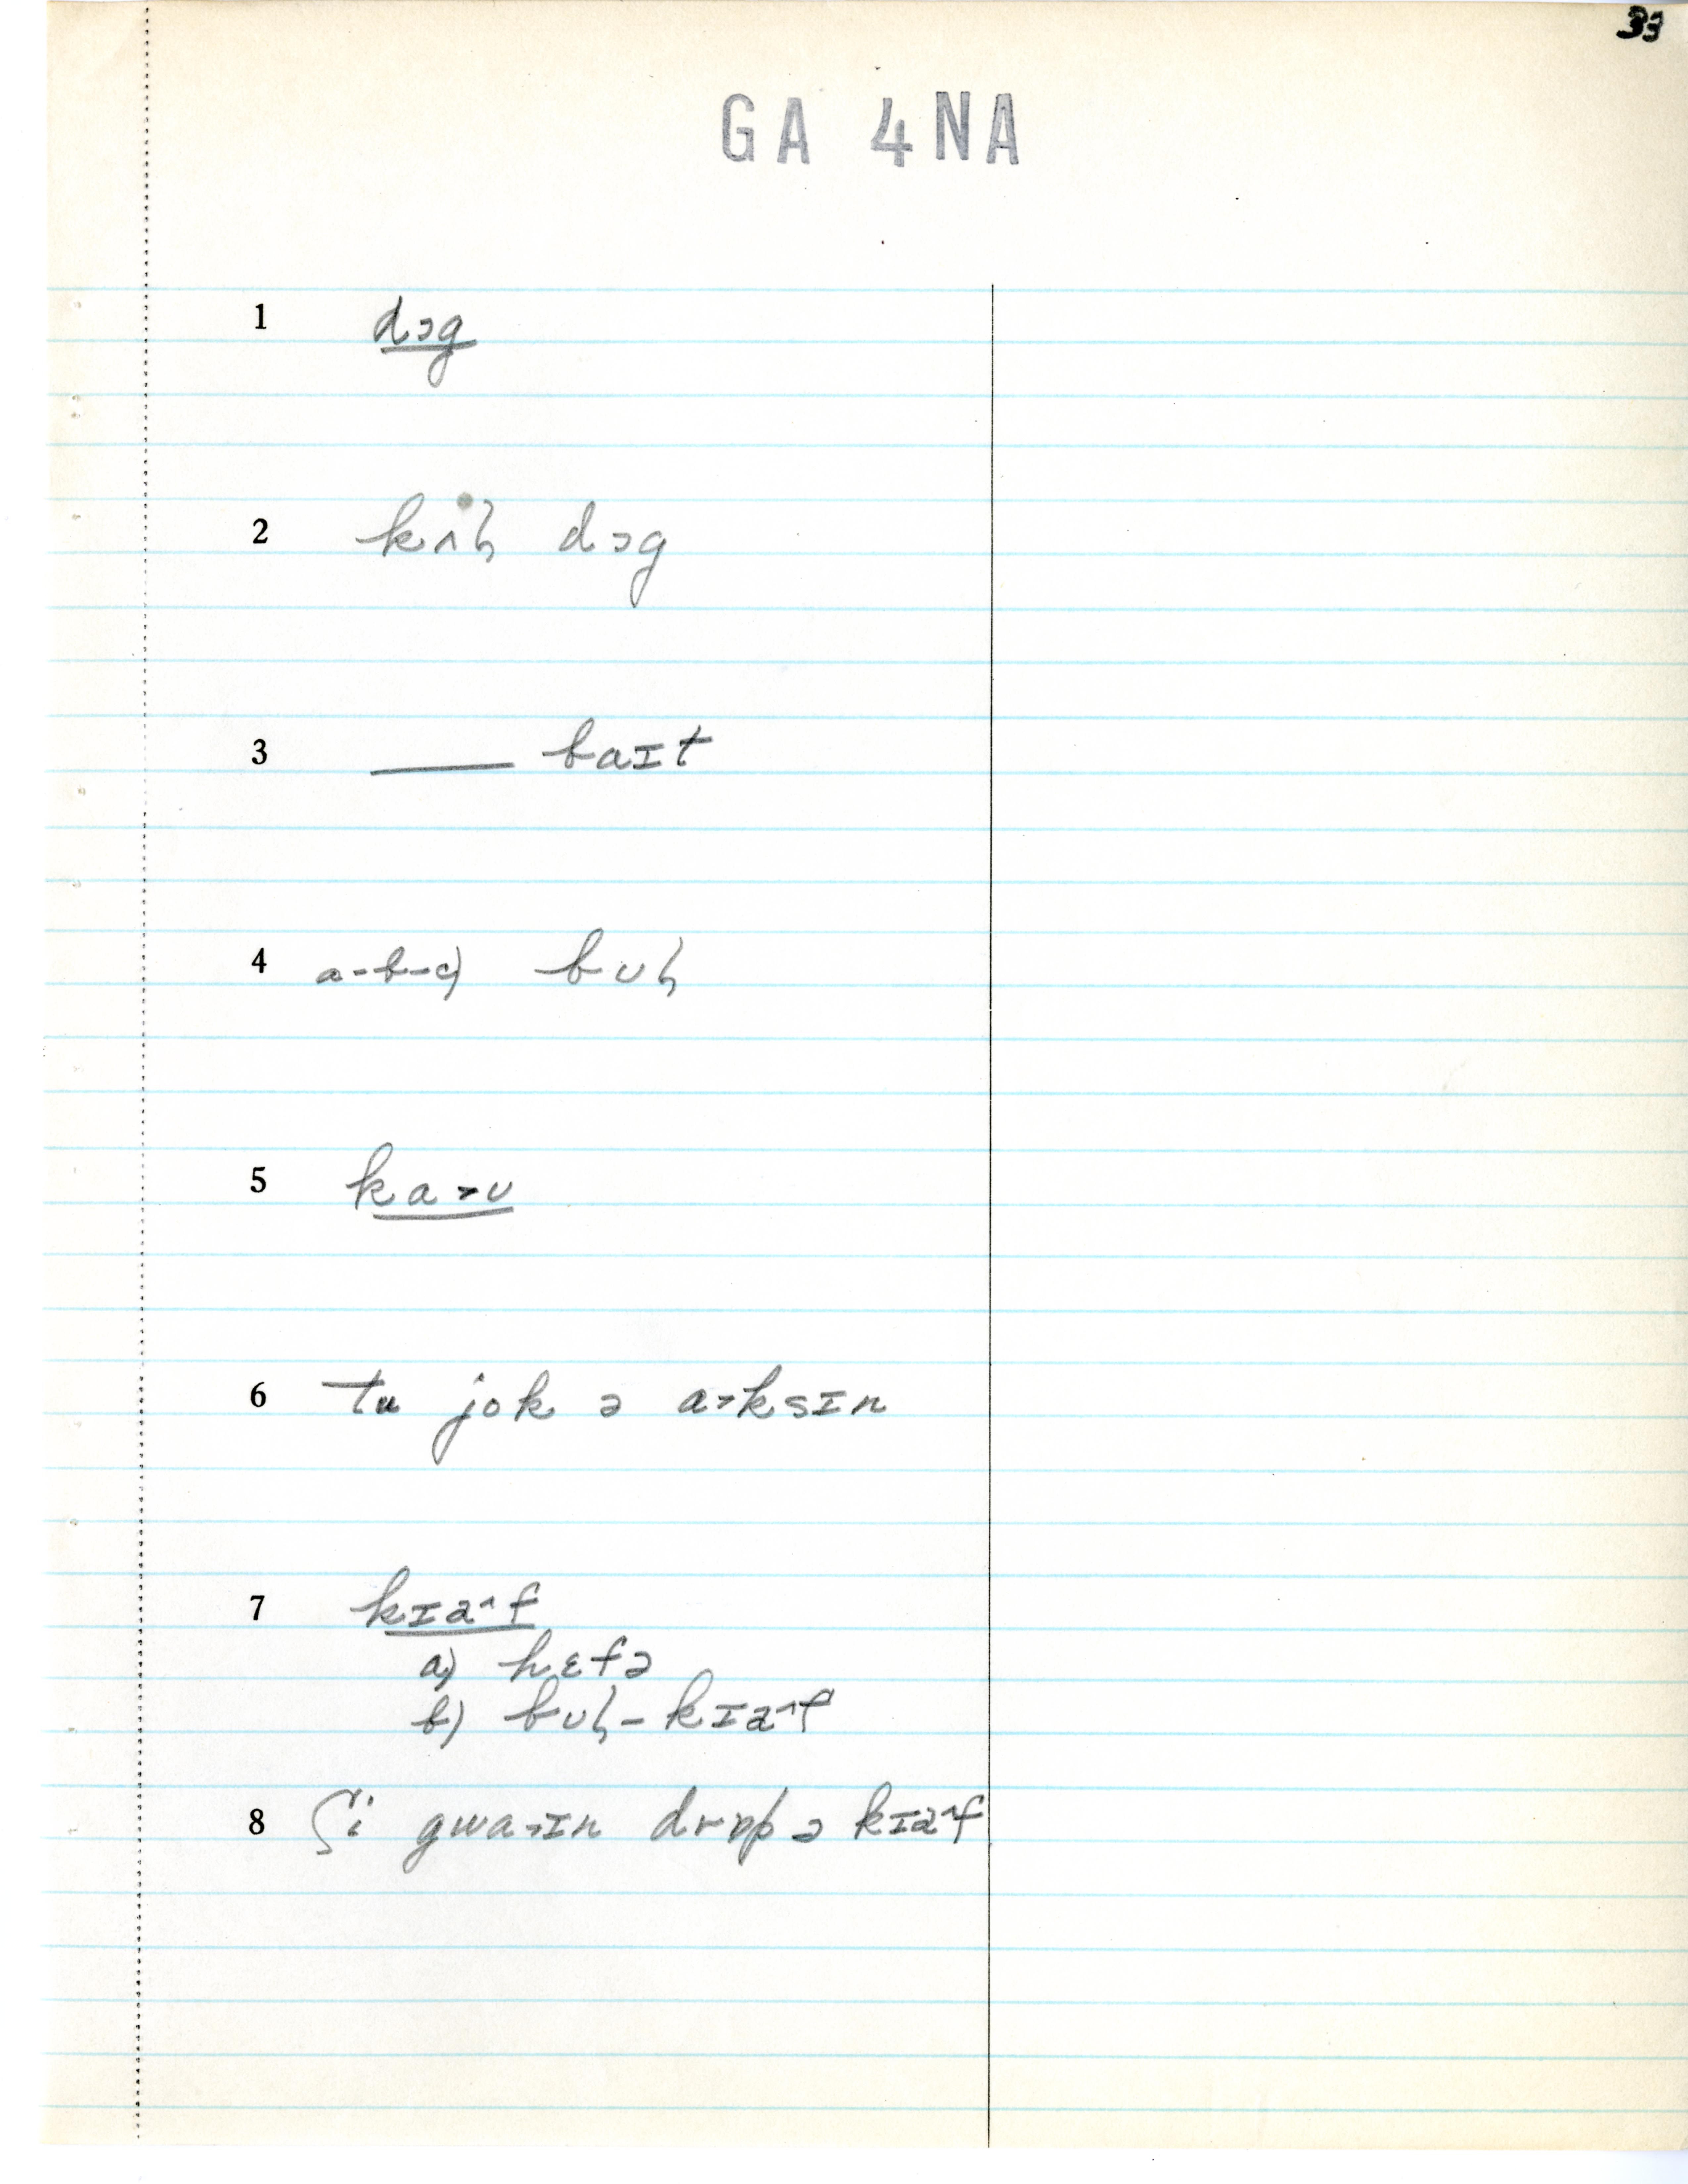 33
GA 4NA
1 dɔg
2 kʌɦ dɔg
3 ____ baɪt
4 a-b-c) bʊɦ
5 ka>ʊ
6 tu jok ə a>ksɪn
7 kɪə^f
a) hɛfə
b) bʊɦ-kɪə^f
8 ʃi gwa>ɪn drɒp ə kɪə^f